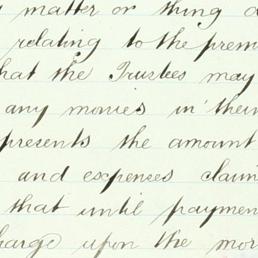 matter or thing
relating to the prem
that the Trustees may
any monies in their
presents the amount
and expenses claim
that until paymen
charge upon the mor